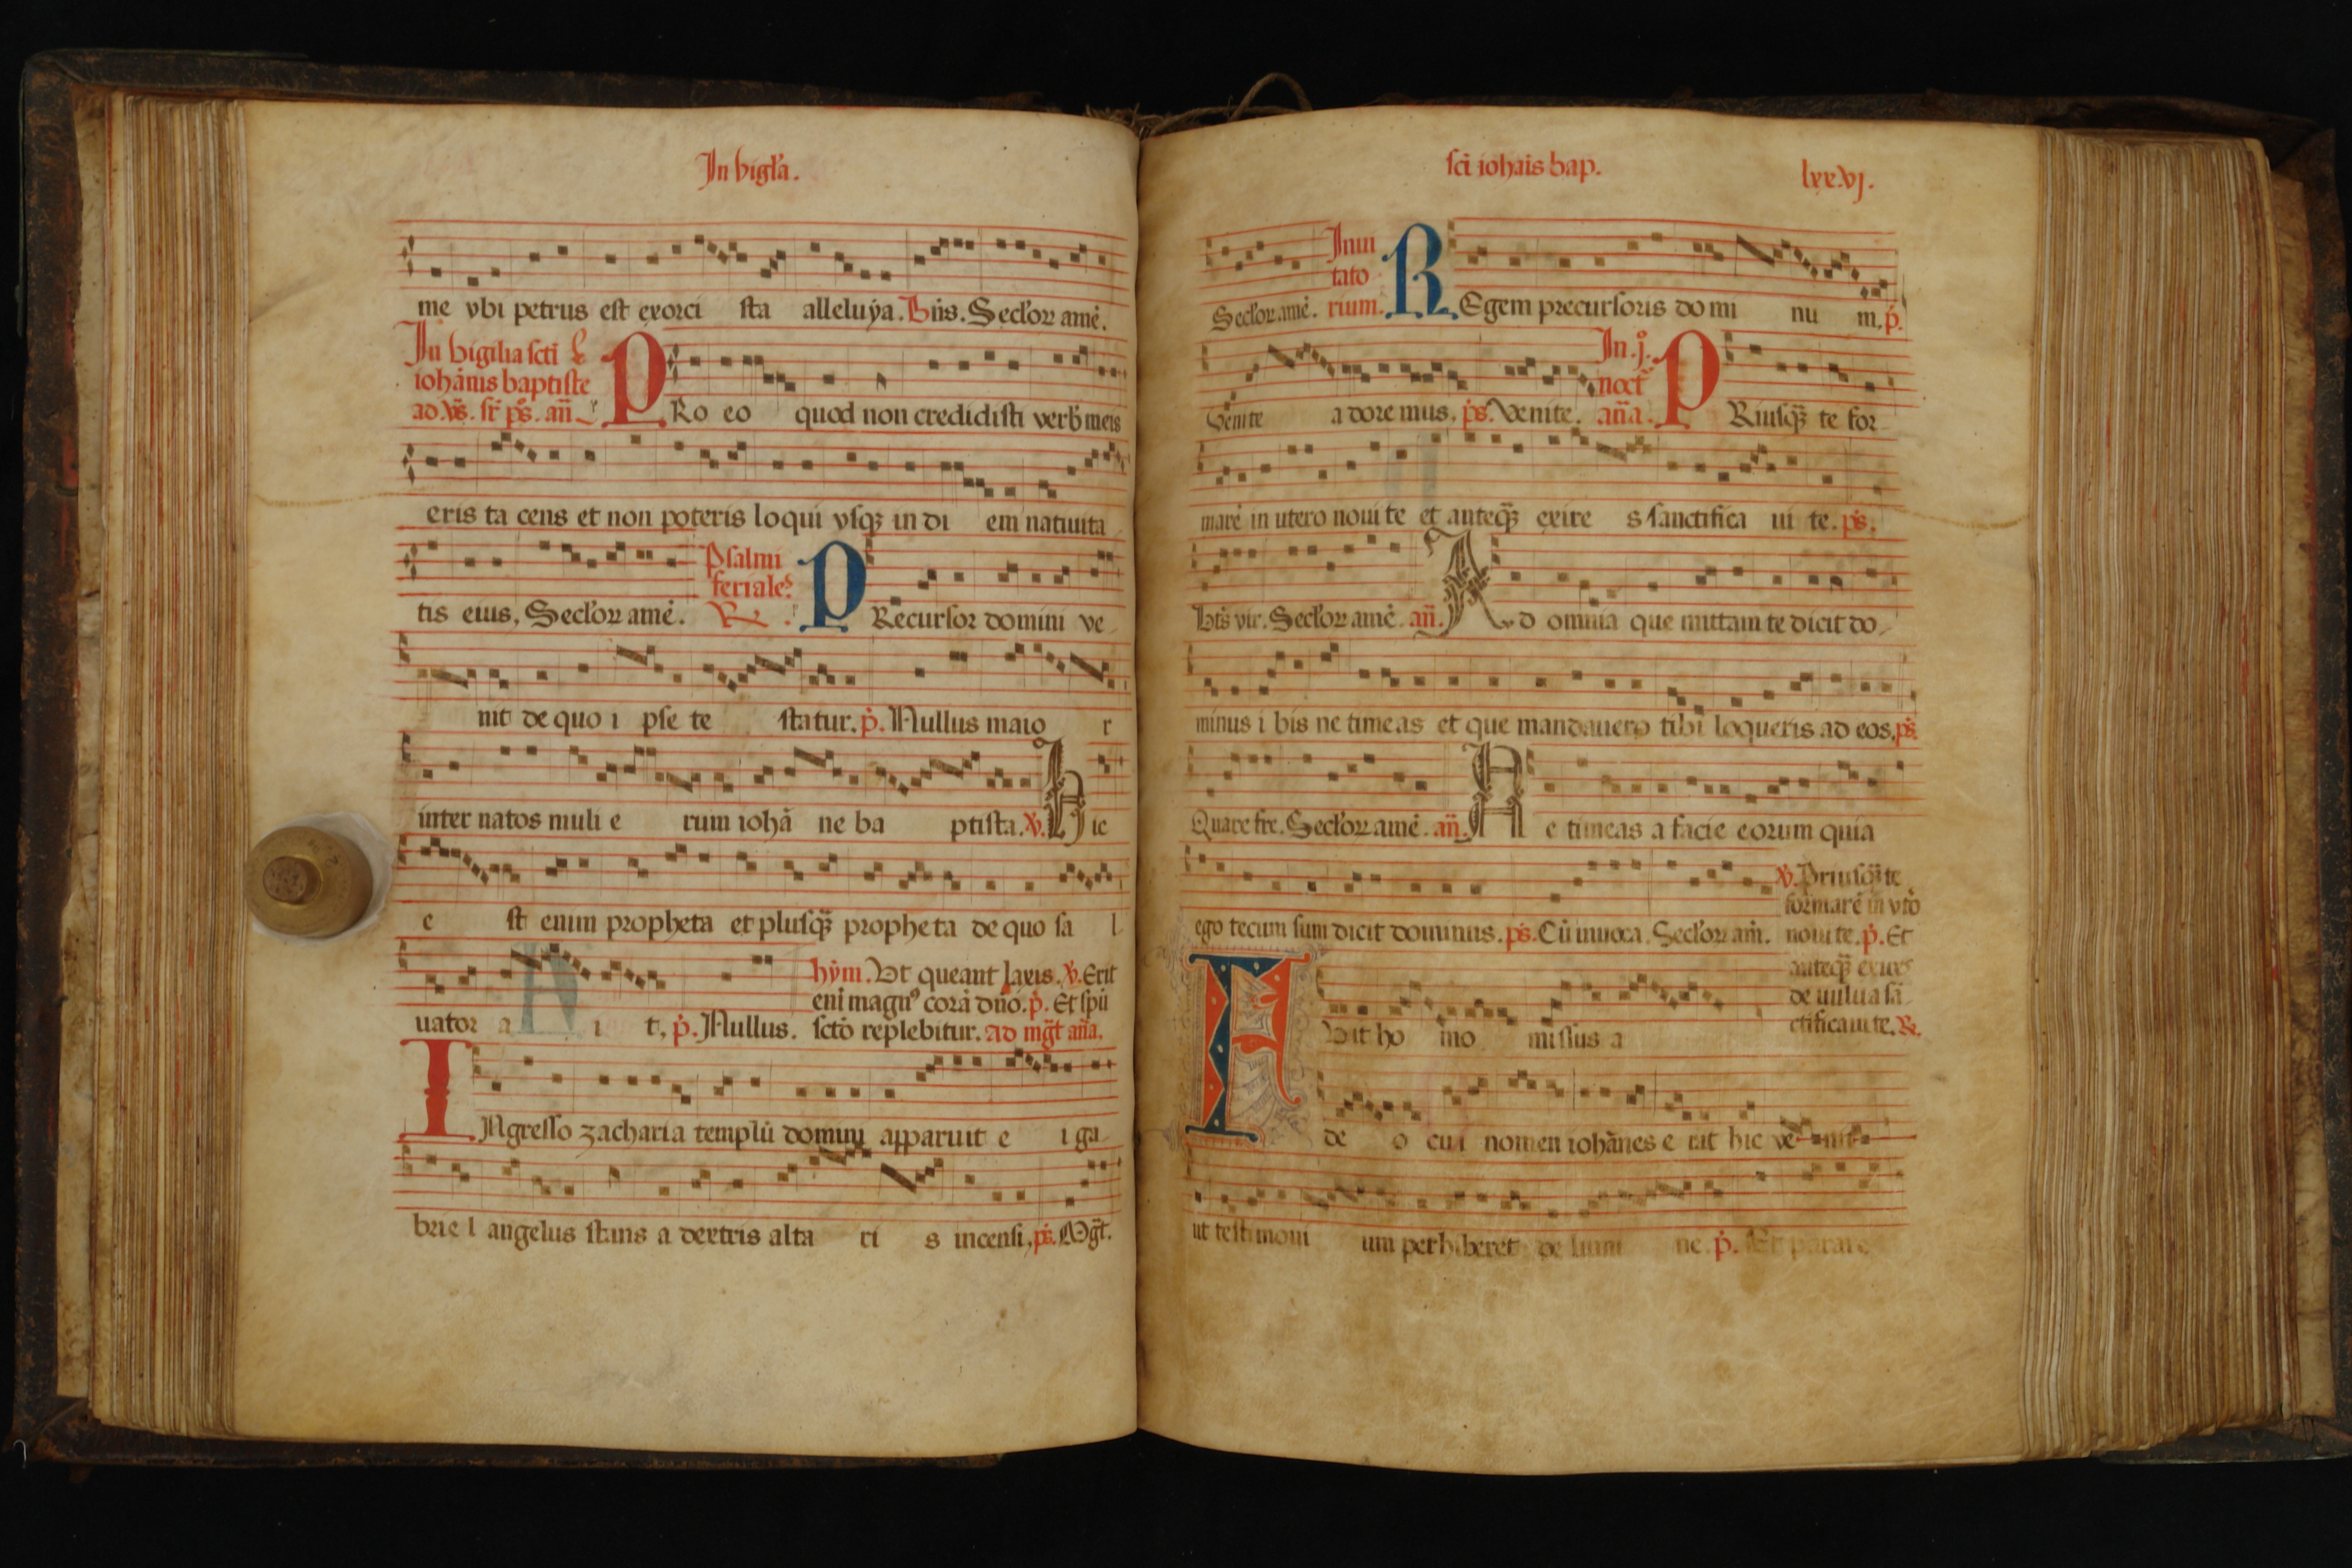 In vigl'a.
me vbi petrus est exorci sta alleluya. Bn̄s. Secl'oꝝ amē.
In vigilia scti
iohānis baptiste
ad v̄s. sr̄ ps̄. an̄
PRo eo quod non credidisti verb meis
eris ta cens et non poteris loqui vsqꝫ in di em natiuita
tis eius. Secl'oꝝ amē. Psalmi
feriales
R. PRecursor domini ve
nit de quo i pse te statur. p̄. Nullus maio r
inter natos muli e rum iohā ne ba ptista. v̄. Hic
e st enim propheta et plusqꝫ propheta de quo sa l
uator a i t, p̄. Nullus.
hȳm. Vt queant laxis. v̄. Erit
eni magnꝰ corā dn̄o. p̄. Et spū
scto replebitur. ad mḡt an̄a.
INgresso zacharia templū domini apparuit e i ga
brie l angelus stans a dextris alta ri s incensi. ps̄. Mḡt.
sci iohais bap. lxx.vj.
Secl'oꝝ amē. Inui
tato
rium. REgem precursoris do mi nu m. p̄.
Venite a dore mus. ps̄. Venite. In .j.
noct
an̄a. PRiusqꝫ te for
marē in utero noui te et anteqꝫ exire s sanctifica ui te. ps̄.
Bt̄s vir. Secl'oꝝ amē. an̄. Ad omnia que mittam te dicit do
minus i bis ne timeas et que mandauero tibi loqueris ad eos. ps̄.
Quare fre. Secl'oꝝ amē. an̄. Ne timeas a facie eorum quia
ego tecum sum dicit dominus. ps̄. Cū inuoca. Secl'oꝝ am̄.
v̄. Priusqꝫ te
formarē in vto
noui te. p̄. Et
anteqꝫ exires
de uulua sā
ctificaui te. R.
FVit ho mo missus a
de o cui nomen iohānes e rat hic ve nit
ut testimoni um perhiberet de lumi ne. p̄. Et parare